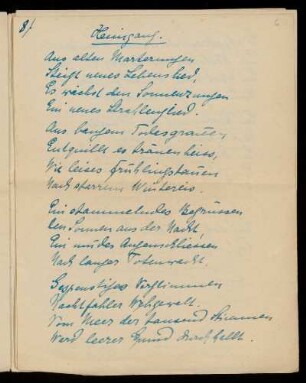 8/.
Heimgang.
Aus alten Marterungen
Steigt neues Lebenslied,
Es wächst den Sonnenzungen
Ein neues Strahlenglied.
Aus bangem Todesgrauen,
Entquillt es tränenheiss,
Wie leises Frühlingstauen
Nach starrem Wintereis.
Ein stammelndes Begrüssen
Der Sonnen aus der Nacht,
Ein müdes Augenschliessen
Nach langer Totenwacht.
Gespenstiges
Nachtfahler
Vom Meer der tausend Stimmen
Wird leerer Grund